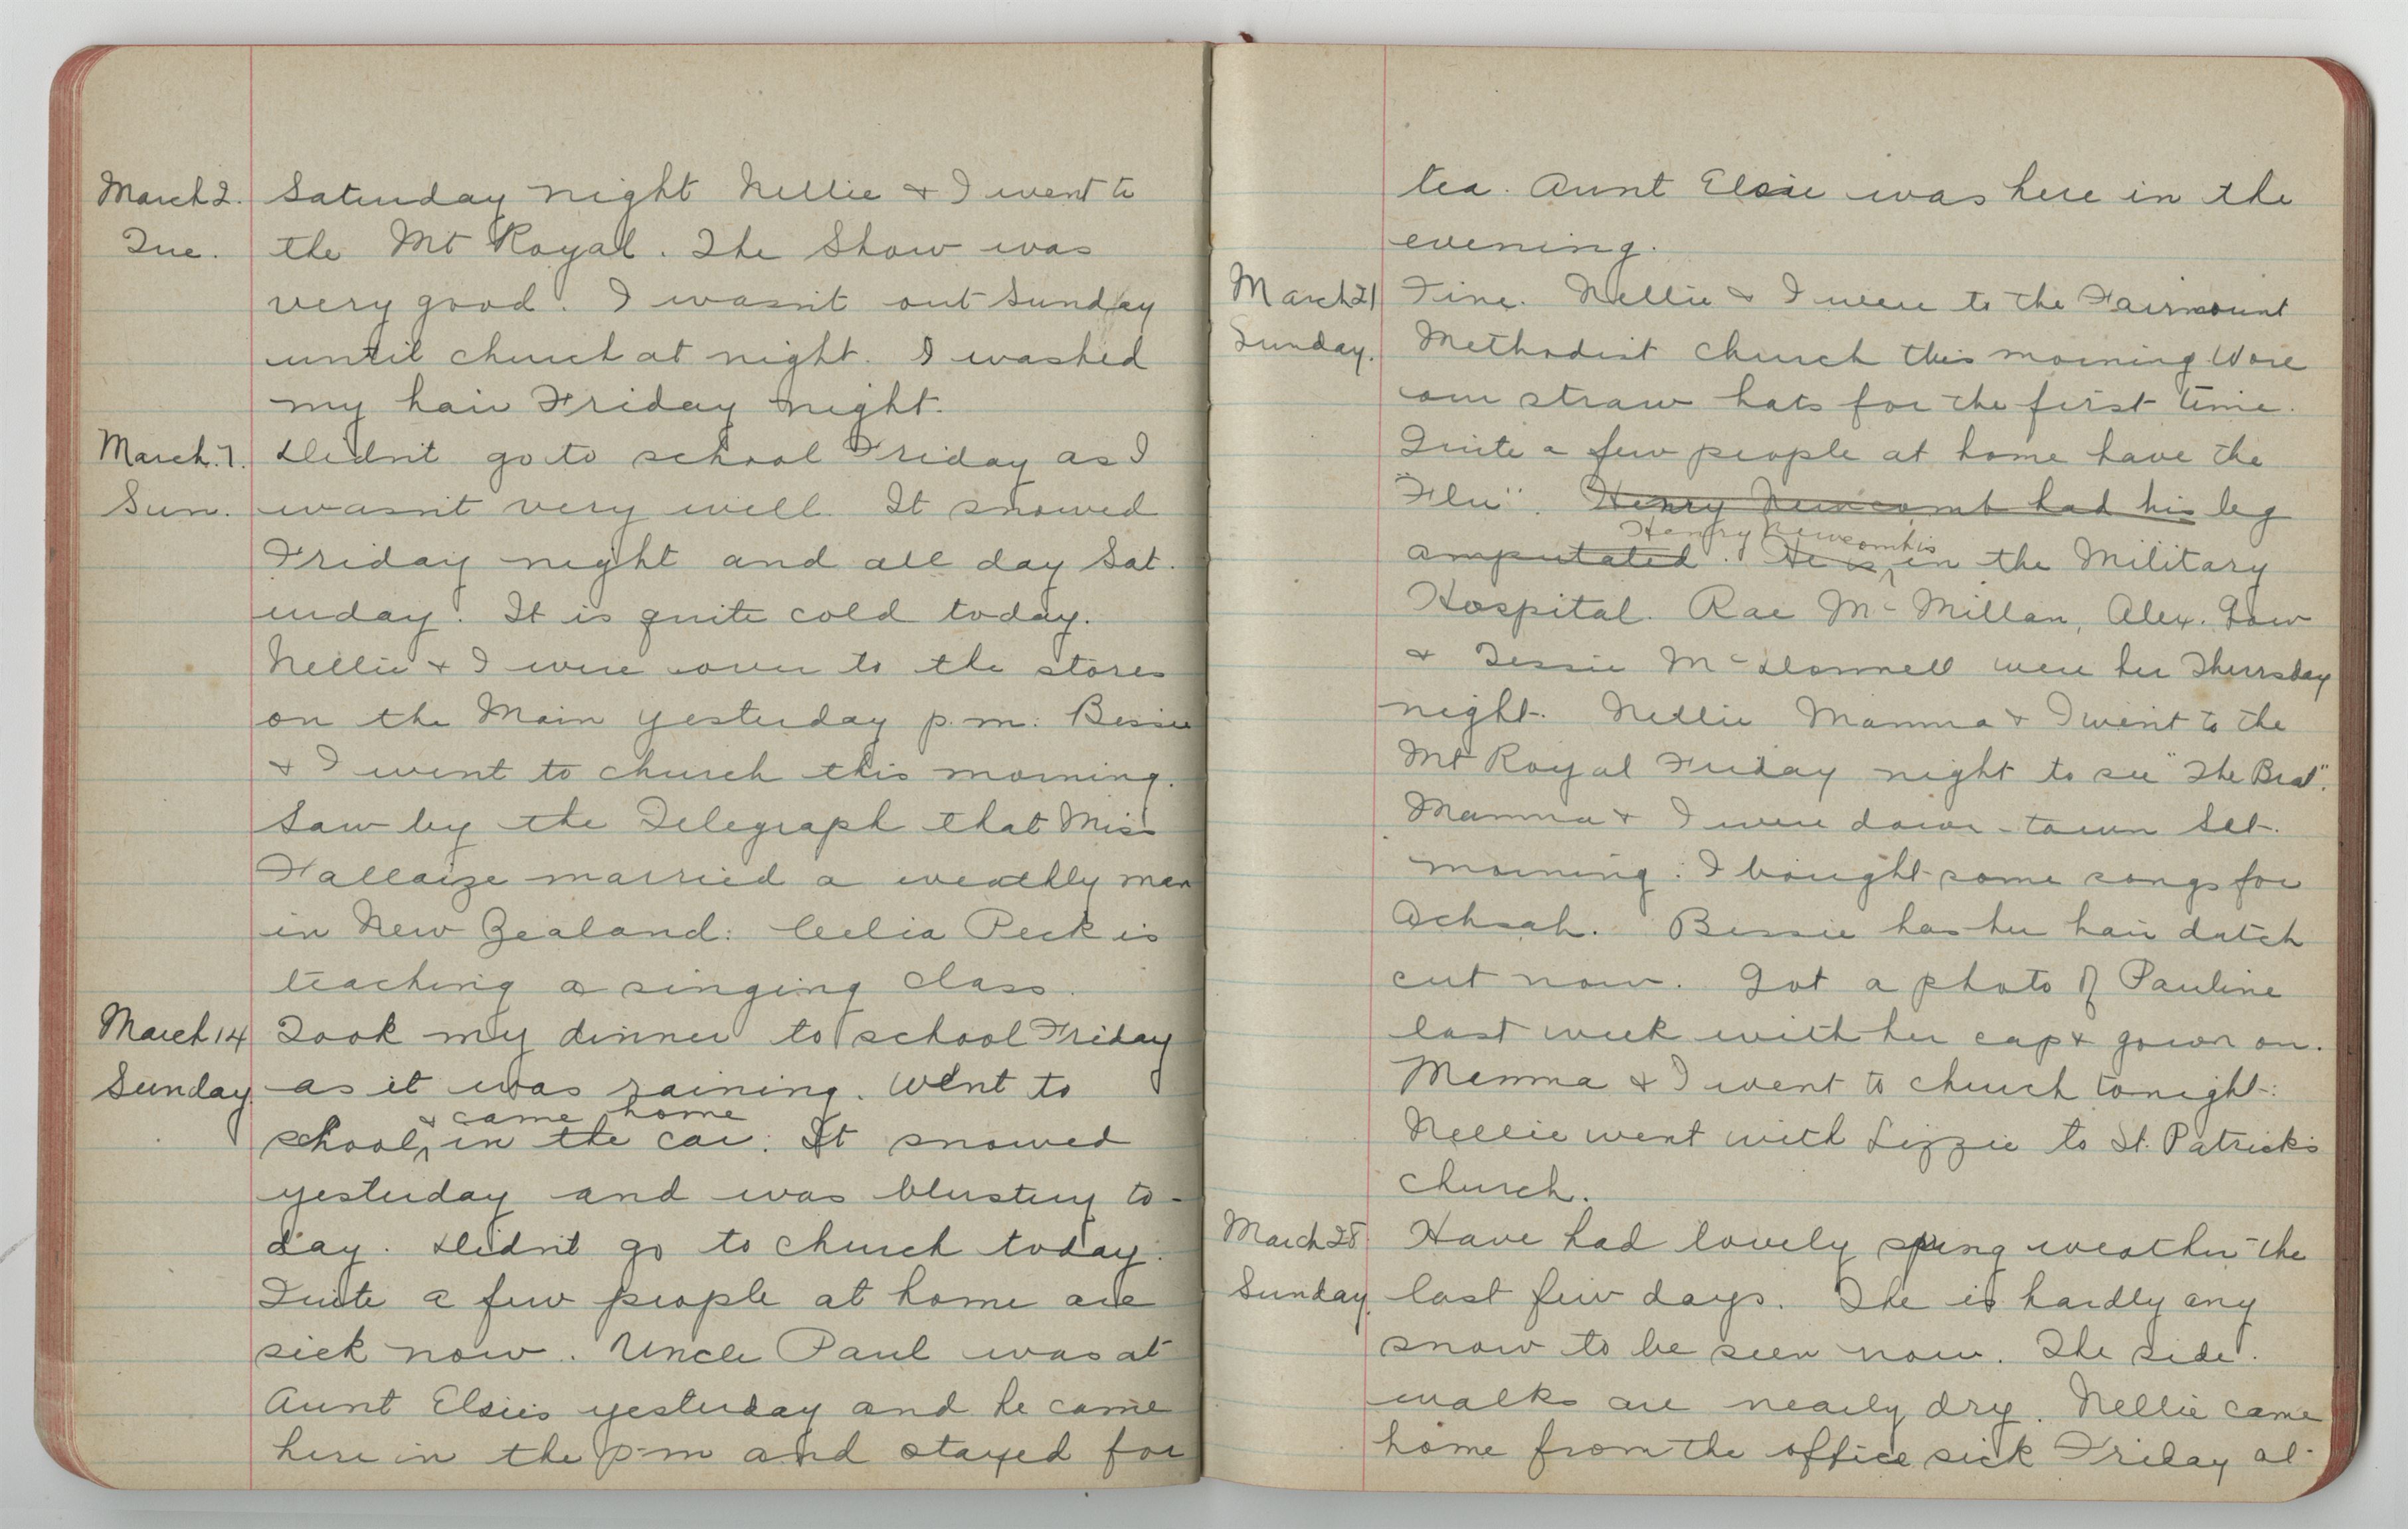 March 2. Saturday night Nellie & I went to
Tue. the Mt Royal. The Show was
very good. I wasn't out Sunday
until church at night. I washed
my hair Friday night.
March. 7. Didn't go to school Friday as I
Sun. wasn't very well. It snowed
Friday night and all day Sat.
urday. It is quite cold today.
Nellie & I were over to the stores
on the Main yesterday p.m. Bessie
& I went to church this morning.
Saw by the Telegraph that Miss
Fallaize married a wealthy man
in New Zealand. Celia Peck is
teaching a singing class.
March 14 Took my dinner to school Friday
Sunday as it was raining. Went to
& came home
school, in the car. It snowed
yesterday and was blustery to-
day. Didn't go to church today.
Quite a few people at home are
sick now. Uncle Paul was at
Aunt Elsie's yesterday and he came
here in the p.m and stayed for
tea. Aunt Elsie was here in the
evening.
March 21 Fine. Nellie & I were to the Fairmount
Sunday. Methodist church this morning. Wore
our straw hats for the first time.
Quite a few people at home have the
"Flu". Henry Newcomb had his leg
Henry Newcomb is
amputated. He is in the Military
Hospital. Rae McMillan, Alex. Gow
& Tessie McDonnell were her Thursday
night. Nellie Mamma & I went to the
Mt Royal Friday night to see "The Brat".
Mamma & I were down-town Sat.
morning. I bought some songs for
Achsah. Bessie has her hair dutch
cut now. Got a photo of Pauline
last week with her cap & gown on.
Mamma & I went to church tonight.
Nellie went with Lizzie to St. Patrick's
church.
March 28 Have had lovely spring weather the
Sunday. last few days. The is hardly any
snow to be seen now. The side.
walks are nearly dry. Nellie came
home from the office sick Friday at